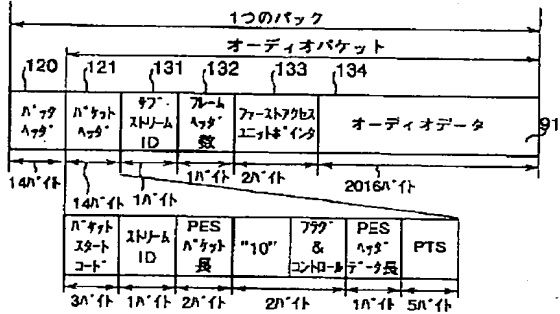 1つのパック
オーディオパケット
120 121 131 132 133 134
パック ヘッダ
パケット ヘッダ
サブ・ ストリーム ID
フレーム ヘッダ 数
ファーストアクセス ユニットポインタ
オーディオデータ
91
14バイト
14バイト
1バイト
1バイト
2バイト
2016バイト
パケット スタート コード
ストリーム ID
PES パケット 長
"10"
フラグ & コントロール
PES ヘッダ データ長
PTS
3バイト 1バイト 2バイト 2バイト 1バイト 5バイト